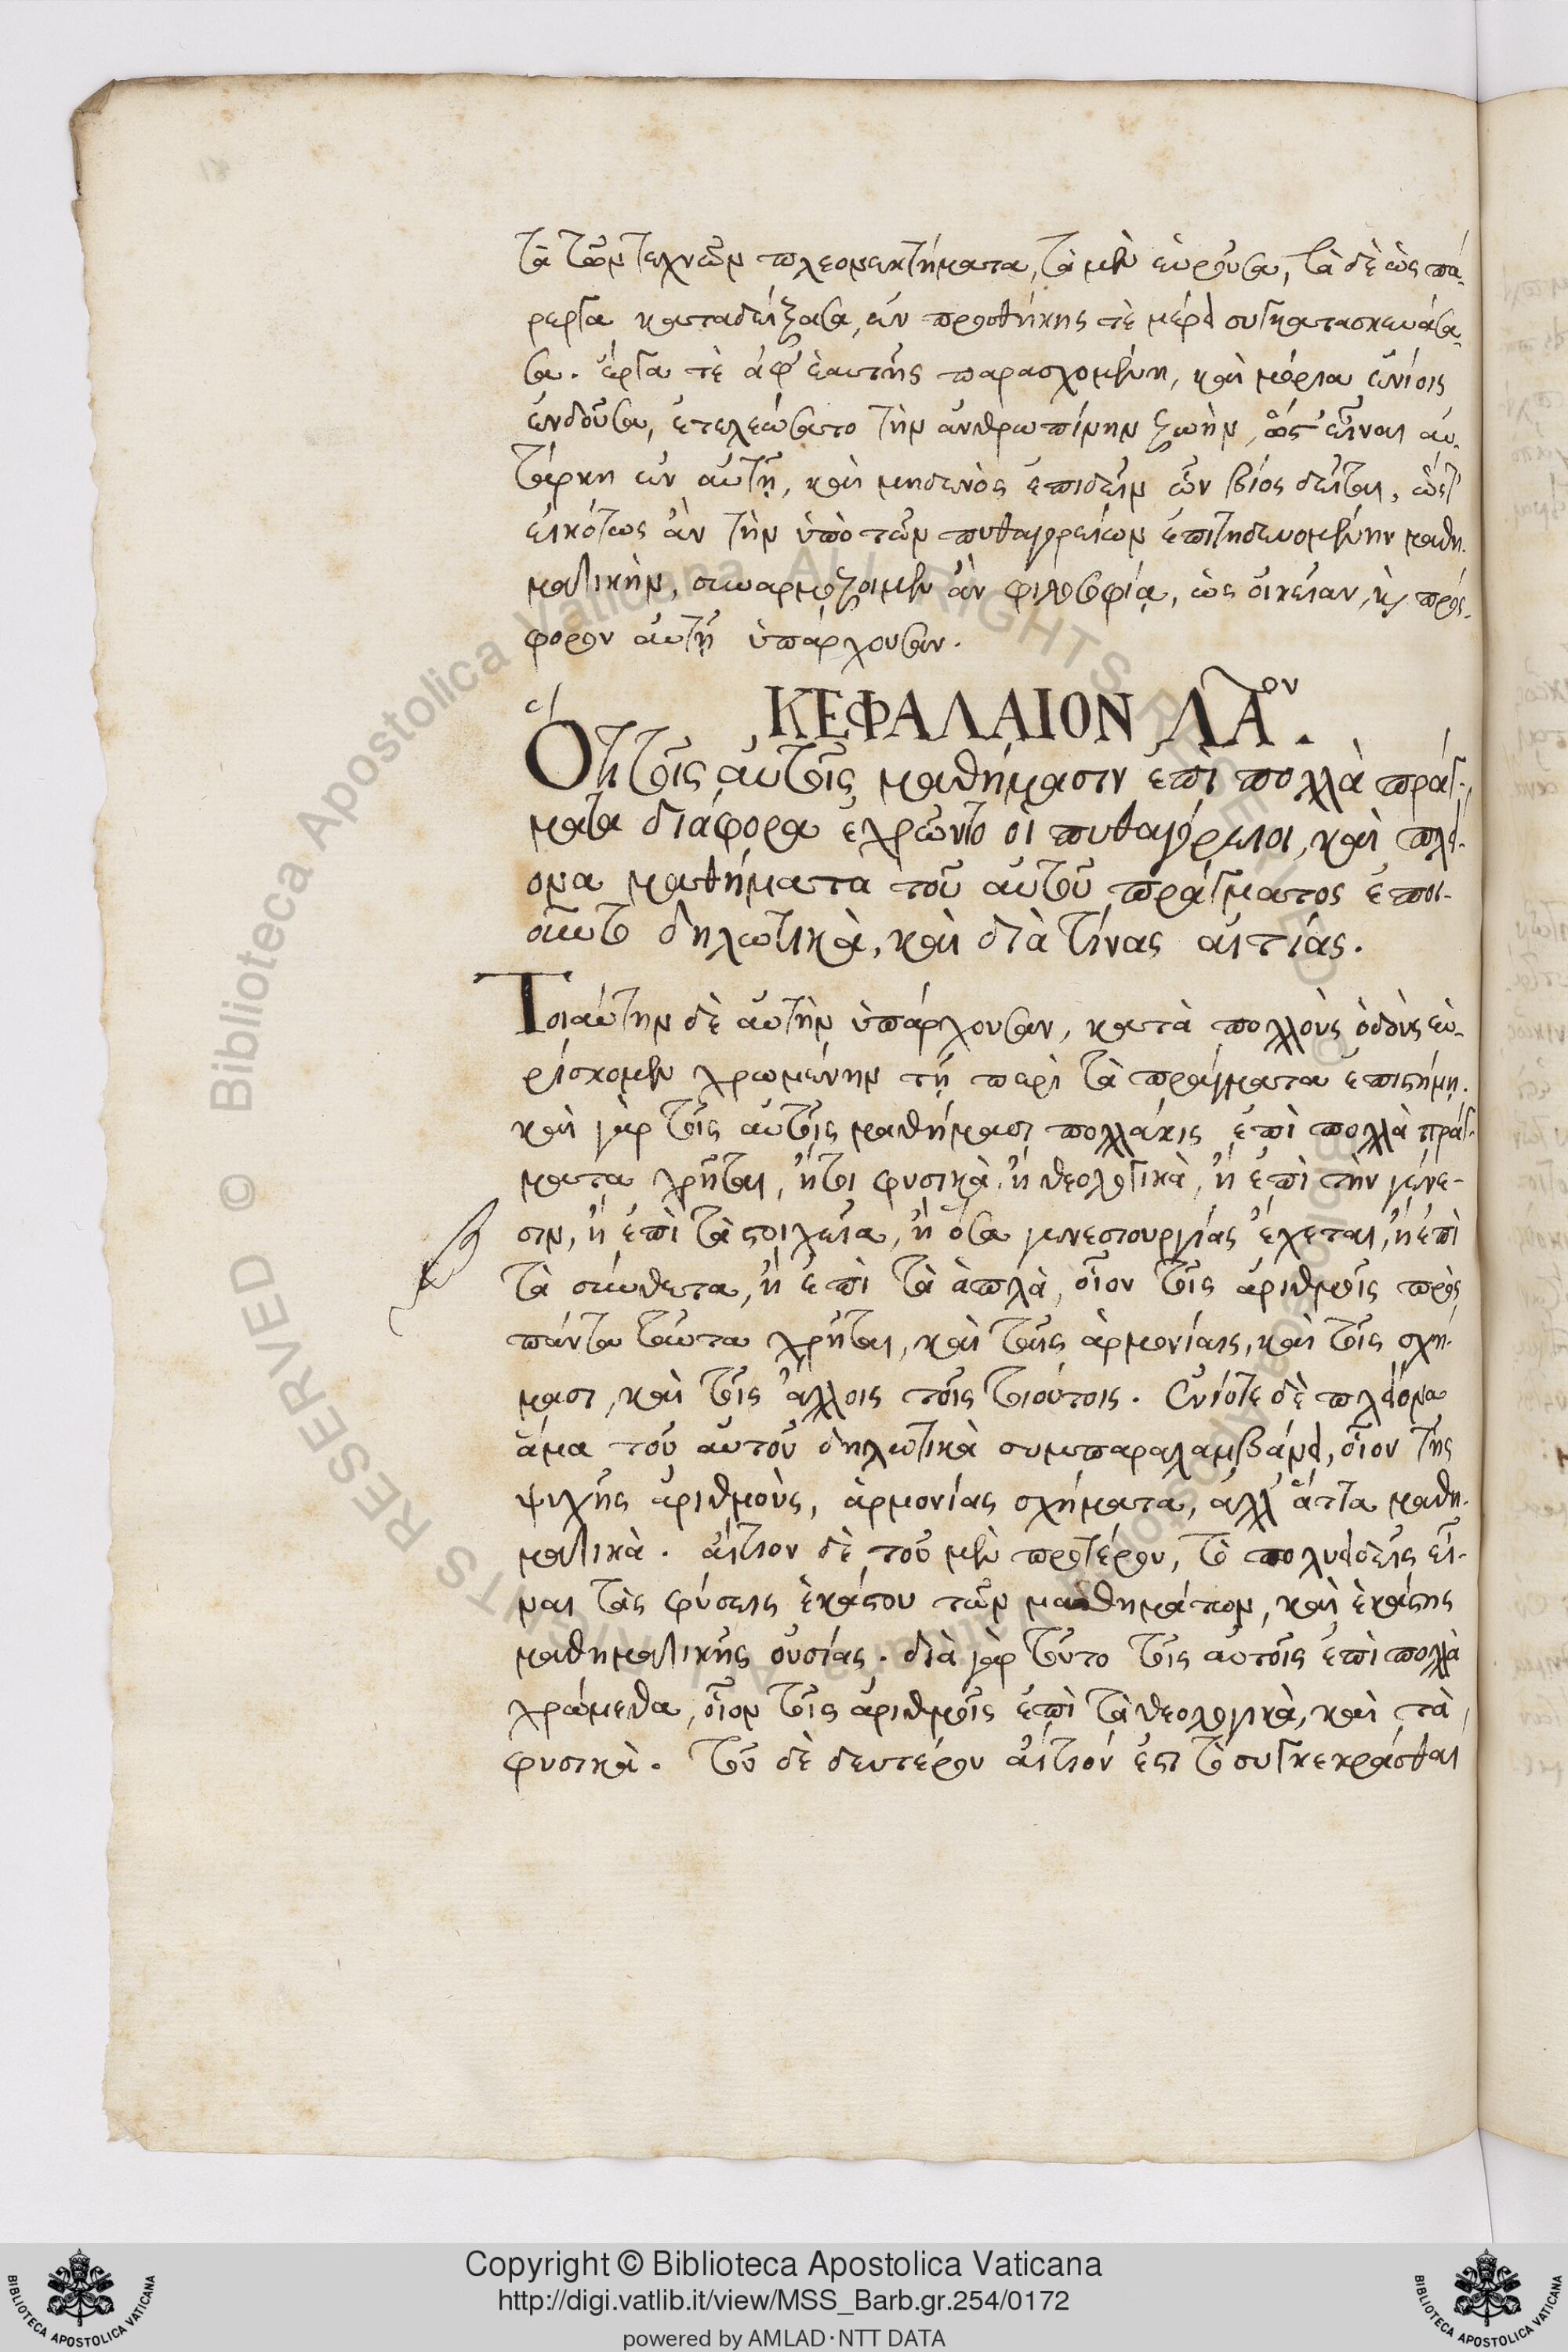 τὰ τῶν τεχνῶν πλεονεκτήματα, τὰ μὲν εὑροῦσα, τὰ δὲ ὡς πά-
ρεργα καταδείξασα, ἐν προσθήκης τὲ μέρει συγκατασκευάσα-
σα. ἔργα τὲ ἀφ' ἑαυτῆς παρασχομένη, καὶ μόρια ἐνίοις
ἐνδοῦσα, ἐτελεώσατο τὴν ἀνθρωπίνην ζωὴν, ὡς εἶναι αὐ-
τάρκη ἐν αὐτῇ, καὶ μηδενὸς ἐπιδεῖν ὧν βίος δεῖται, ὥστ'
εἰκότως ἂν τὴν ὑπὸ τῶν πυθαγορείων ἐπιτηδευομένην μαθη-
ματικὴν, συναρμόζοιμεν ἂν φιλοσοφίᾳ, ὡς οἰκείαν, κ πρόσ-
φορον αὐτῇ ὑπάρχουσαν.
ΚΕΦΑΛΑΙΟΝ ΛΑον.
Ὅτι τοῖς αὐτοῖς μαθήμασιν ἐπὶ πολλὰ πράγ-
ματα διάφορα ἐχρῶντο οἱ πυθαγόρειοι, καὶ πλεί-
ονα μαθήματα τοῦ αὐτοῦ πράγματος ἐποι-
οῦντο δηλωτικὰ, καὶ διὰ τίνας αἰτίας.
Τοιαύτην δὲ αὐτὴν ὑπάρχουσαν, κατὰ πολλοὺς ὁδοὺς εὑ-
ρίσκομεν χρωμένην τῇ περὶ τὰ πράγματα ἐπιστήμῃ.
καὶ γὰρ τοῖς αὐτοῖς μαθήμασι πολλάκις ἐπὶ πολλὰ πράγ-
ματα χρῆται, ἤτοι φυσικὰ, ἢ θεολογικὰ, ἢ ἐπὶ τὴν γένε-
σιν, ἢ ἐπὶ τὰ στοιχεῖα, ἢ ὅσα γενεσιουργίας ἔχεται, ἢ ἐπὶ
τὰ σύνθετα, ἢ ἐπὶ τὰ ἁπλὰ, οἷον τοῖς ἀριθμοῖς πρὸς
πάντα ταῦτα χρῆται, καὶ ταῖς ἁρμονίαις, καὶ τοῖς σχή-
μασι, καὶ τοῖς ἄλλοις τοῖς τοιούτοις. Ἐνίοτε δὲ πλείονα
ἅμα τοῦ αὐτοῦ δηλωτικὰ συμπαραλαμβάνει, οἷον τῆς
ψυχῆς ἀριθμοὺς, ἁρμονίας σχήματα, ἀλλ' ἄττα μαθη-
ματικὰ. αἴτιον δὲ τοῦ μὲν προτέρου, τὸ πολυειδεῖς εἶ-
ναι τὰς φύσεις ἑκάστου τῶν μαθημάτων, καὶ ἑκάστης
μαθηματικῆς οὐσίας. διὰ γὰρ τοῦτο τοῖς αὐτοῖς ἐπὶ πολλὰ
χρώμεθα, οἷον τοῖς ἀριθμοῖς ἐπὶ τὰ θεολογικὰ, καὶ τὰ
φυσικὰ. τοῦ δὲ δευτέρου αἴτιόν ἐστι τὸ συγκεκράσθαι
© Biblioteca Apostolica Vaticana ALL RIGHTS RESERVED
© Biblioteca Apostolica Vaticana ALL RIGHTS RESERVED
Copyright © Biblioteca Apostolica Vaticana
http://digi.vatlib.it/view/MSS_Barb.gr.254/0172
powered by AMLAD·NTT DATA
BIBLIOTECA APOSTOLICA VATICANA
BIBLIOTECA APOSTOLICA VATICANA